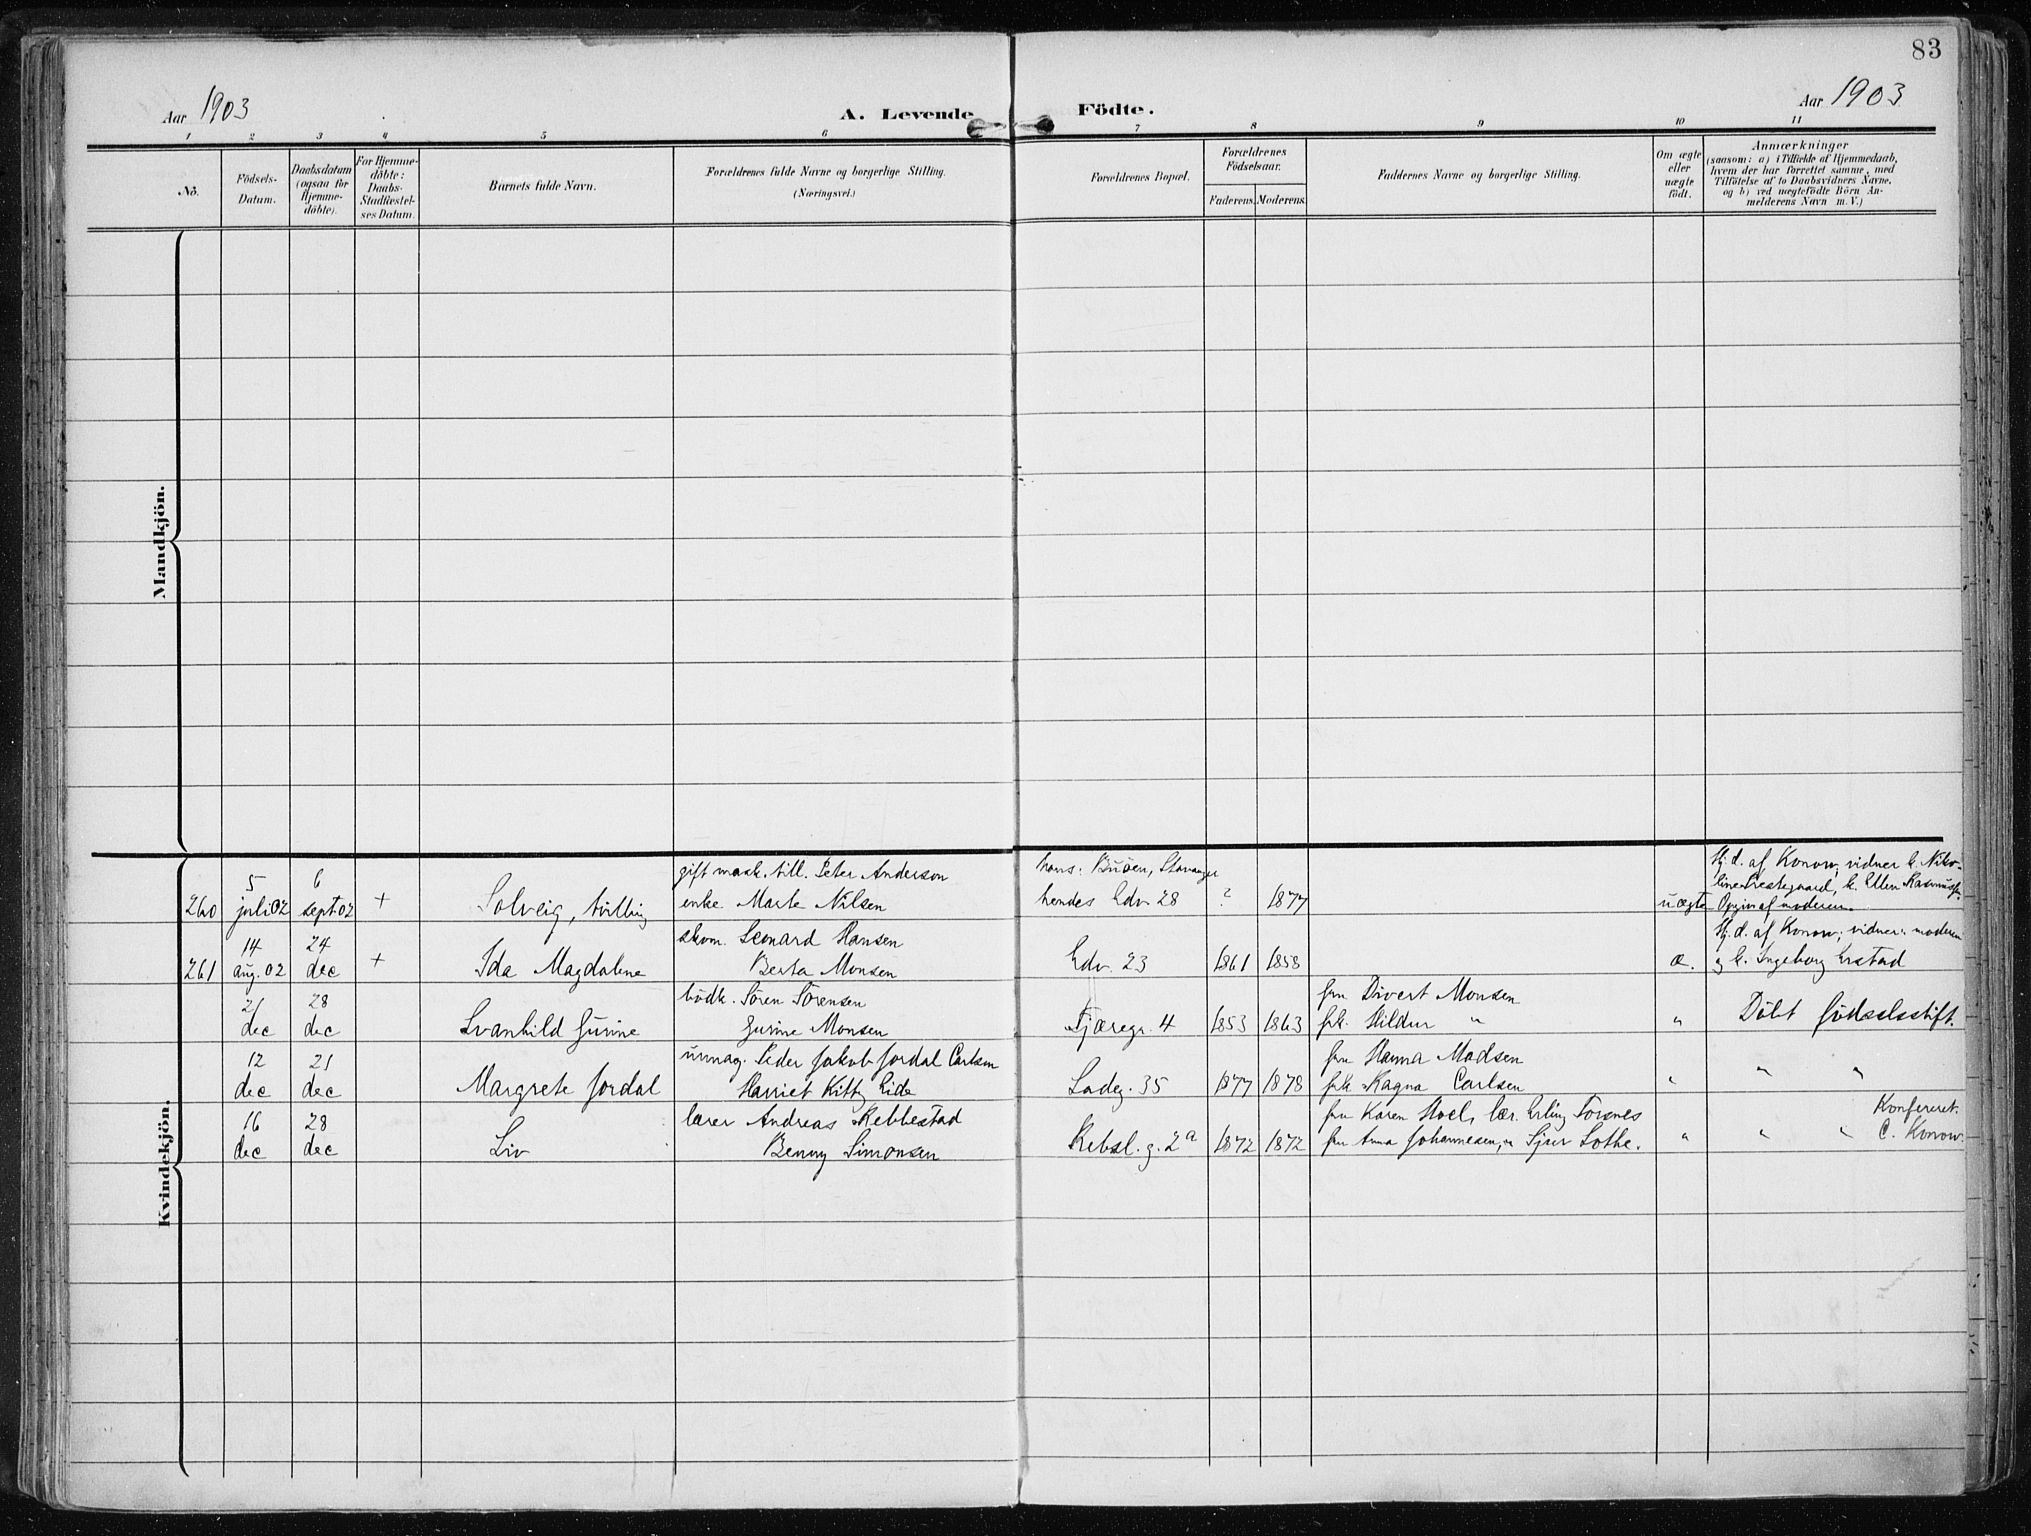 83
Aar 1903
A. Levende
Födte.
Aar 1903
1 2 3 4 5 6 7 8 9 10 11
No.
Födsels-
Datum.
Daabsdatum
(ogsaa for
Hjemme-
döbte).
For Hjemme-
döbte:
Daabs-
Stadfæstel-
ses Datum.
Barnets fulde Navn.
Forældrenes fulde Navne og borgerlige Stilling.
(Næringsvei.)
Forældrenes Bopæl.
Forældrenes
Födselsaar.
Faderens. Moderens.
Faddernes Navne og borgerlige Stilling.
Om ægte
eller
uægte
födt.
Anmærkninger
(saasom: a) i Tilfælde af Hjemmedaab,
hvem der har forrettet samme, med
Tilföielse af to Daabsvidners Navne,
og b) ved uægtefödte Börn An-
melderens Navn m. V.)
Mandkjön.
Kvindekjön.
260
5
juli 02
6
sept 02
+
Solveig, tvilling
gift mask. till. Peter Anderson
enke Marte Nilsen
hans: Buöen, Stavanger
hendes Edv. 28
? 1877
uægte
Hj. d. af Konow, vidner: k. Niko-
line Prestegaard, k. Ellen Rasmuss.
Opgiv. af moderen.
261
14
aug. 02
24
dec
+
Ida Magdalene
skom. Leonard Hansen
Berta Monsen
Edv. 23
1861 1858
æ.
Hj. d. af Konow; vidner: moderen
og k. Ingeborg Erstad
21
dec
28
dec
Svanhild Gurine
bödk. Sören Sörensen
Gurine Monsen
Tjæregr. 4
1853 1863
fru Divert Monsen
frk. Hildur "
"
Döbt Födselsstift.
12
dec
21
dec
Margrete Jordal
urmag. Peder Jakob Jordal Carlsen
Harriet Kitty Eide
Ladeg. 35
1877 1878
fru Hanna Madsen
frk Ragna Carlsen
" " "
16
dec
28
dec
Liv
lærer Andreas Rebbestad
Benny Simonsen
Rebsl. g. 2a
1872 1872
fru Karen Hoel, lær. Erling Torsnes
fru Anna Johannesen, " Sjur Lothe.
" " "
Konfereret.
C. Konow.